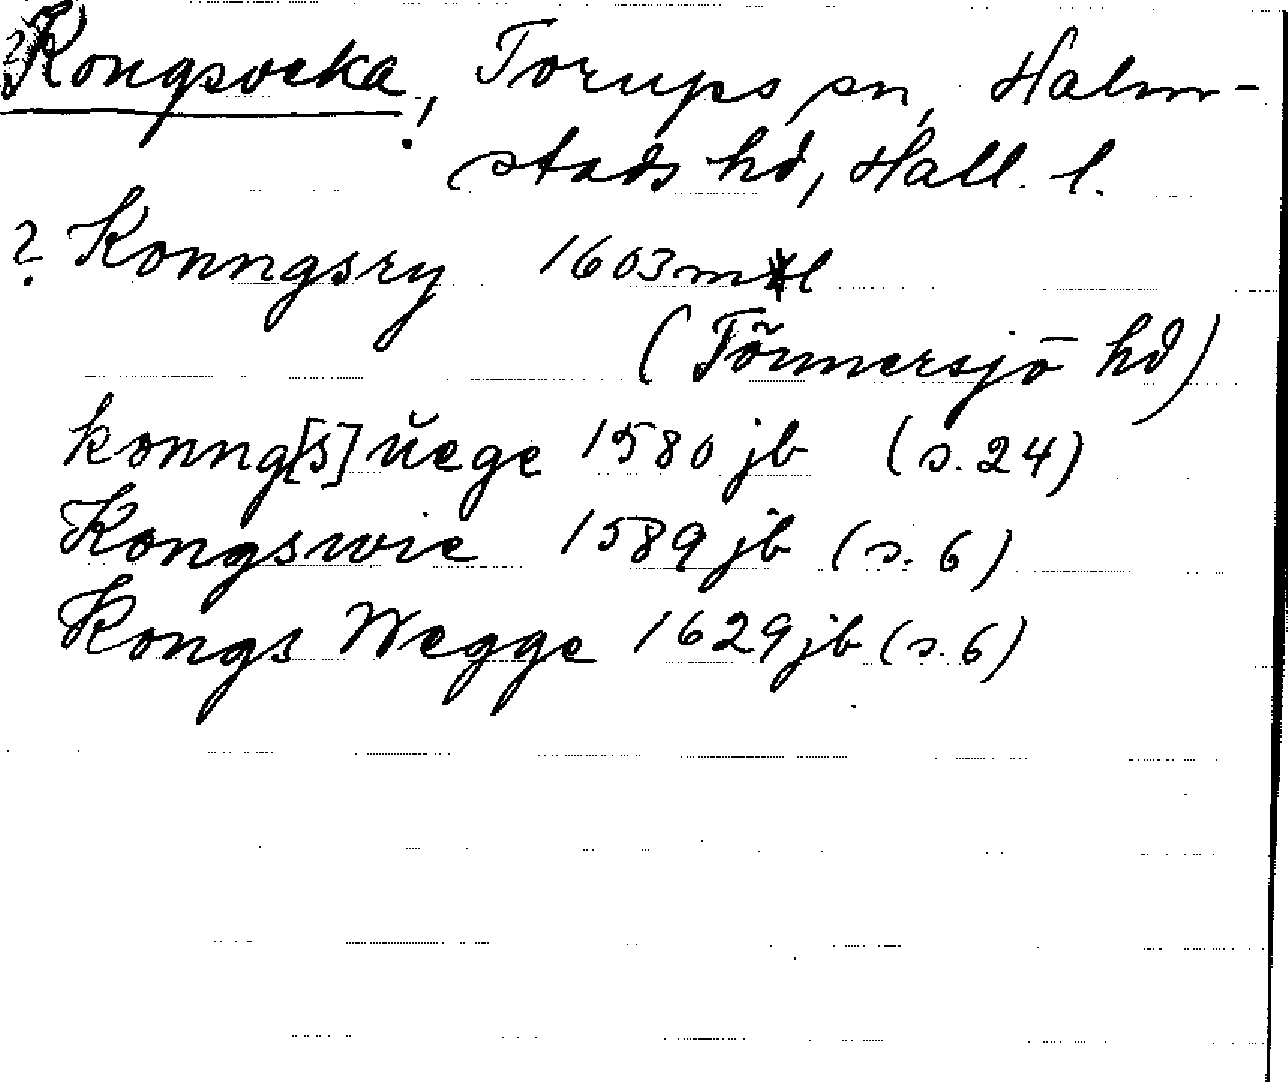 Kongsveka, Torups sn, Halm-
stads hd, Hall. l.
? Konngsry 1603 mtl
(Tönnersjö hd)
konng[s] ŭege 1580 jb (s. 24)
Kongswie 1589 jb (s. 6)
Kongs Wegge 1629 jb (s. 6)